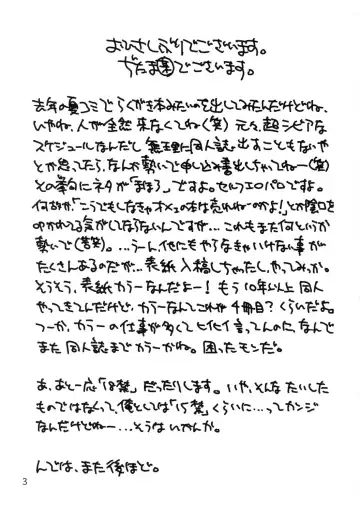 おひさしぶりでございます。
ぢたま(某)でございます。
去年の夏コミでらくがき本みたいのを出してみたんだけどね、
いやね、人が全然来なくてね(笑) 元々、超シビアな
スケジュールなんだし無理に同人誌出すこともないや
とか思ってたら、なんか勢いで申し込み書出しちゃってねー(笑)
その挙句にネタが「まほろ」ですよ。セルフエロパロですよ。
何故か「こうでもしなきゃオメェの本は売れねーのかよ!」とか陰口を
叩かれてる気がしてならないんですが…これもまた何というか
勢いで(苦笑)。…うーん、他にもやらなきゃいけない事が
たくさんあるのだが…表紙入稿しちゃったし、やってみっか。
そうそう、表紙カラーなんだよー! もう10年以上同人
やってきてんだけど、カラーなんてこれが4冊目?くらいだよ。
つーか、カラーの仕事が多くてヒイヒイ言ってんのに、なんで
また同人誌までカラーかね。困ったモンだ。
あ、あと一応「18禁」だったりします。いや、そんなたいした
ものではなくって、俺としては「15禁」くらいに…ってカンジ
なんだけどねー…そうはいかんか。
んでは、また後ほど。
3